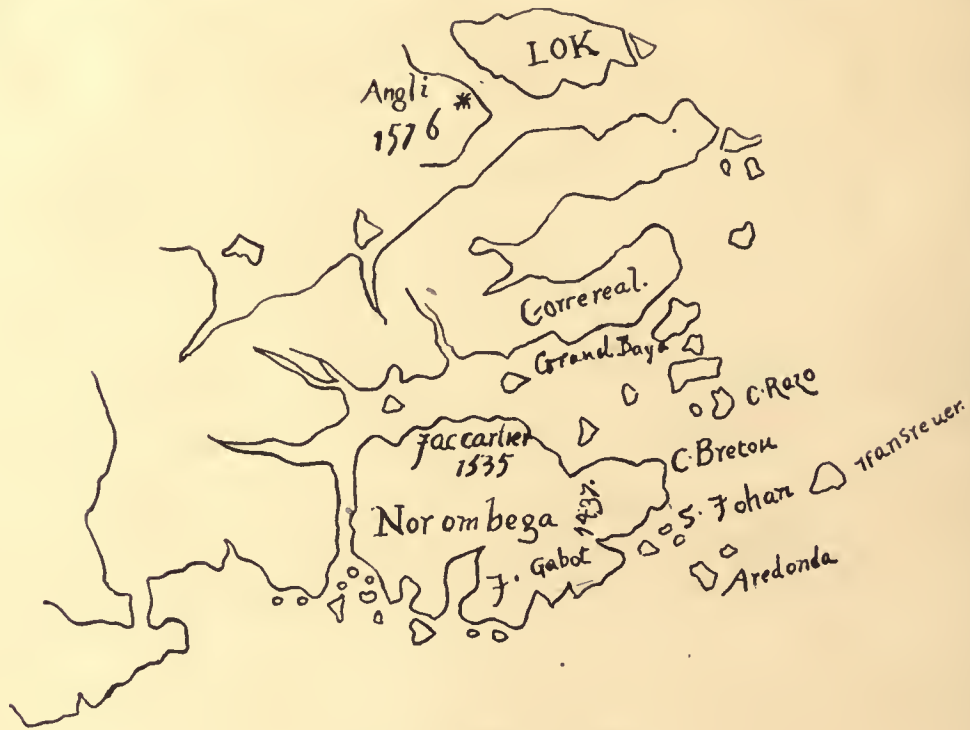 LOK
Angli
1576
Correreal.
Grand Baya
C. Razo
Jac carlier
1535
C. Breton
Norombega
1437.
S. Johan
J. Gabot
Aredonda